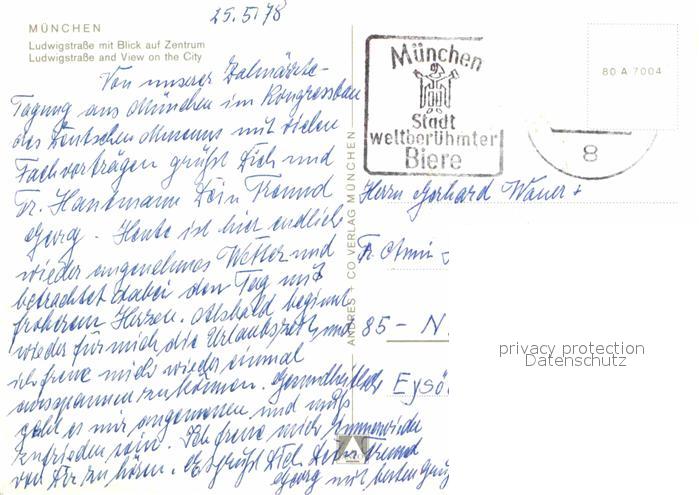 25.5.78
MÜNCHEN
Ludwigstraße mit Blick auf Zentrum
Ludwigstraße and View on the City
Von unserer Zahnärzte-
Tagung aus München im Kongressbau
des Deutschen Museums mit vielen
Fachvorträgen grüßt Dich und
Fr. Dein Freund
Georg. Heute ist hier endlich
wieder angenehmes Wetter und
betrachtet dabei den Tag mit
froherem Herzen. Alsbald beginnt
wieder für mich die Urlaubszeit, und
ich freue mich wieder einmal
ausspannen zu können. Gesundheitlich
geht es mir angemessen und muß
zufrieden sein. Ich freue mich immer wieder
von Dir zu hören. Es grüßt Dich Dein Freund
Georg mit besten Grüß
ANDRES + CO VERLAG MÜNCHEN
München
Stadt
weltberühmter
Biere
80 A 7004
8
Herrn Gerhard Wauer +
Fr.
85 - N.
Eysö
privacy protection
Datenschutz